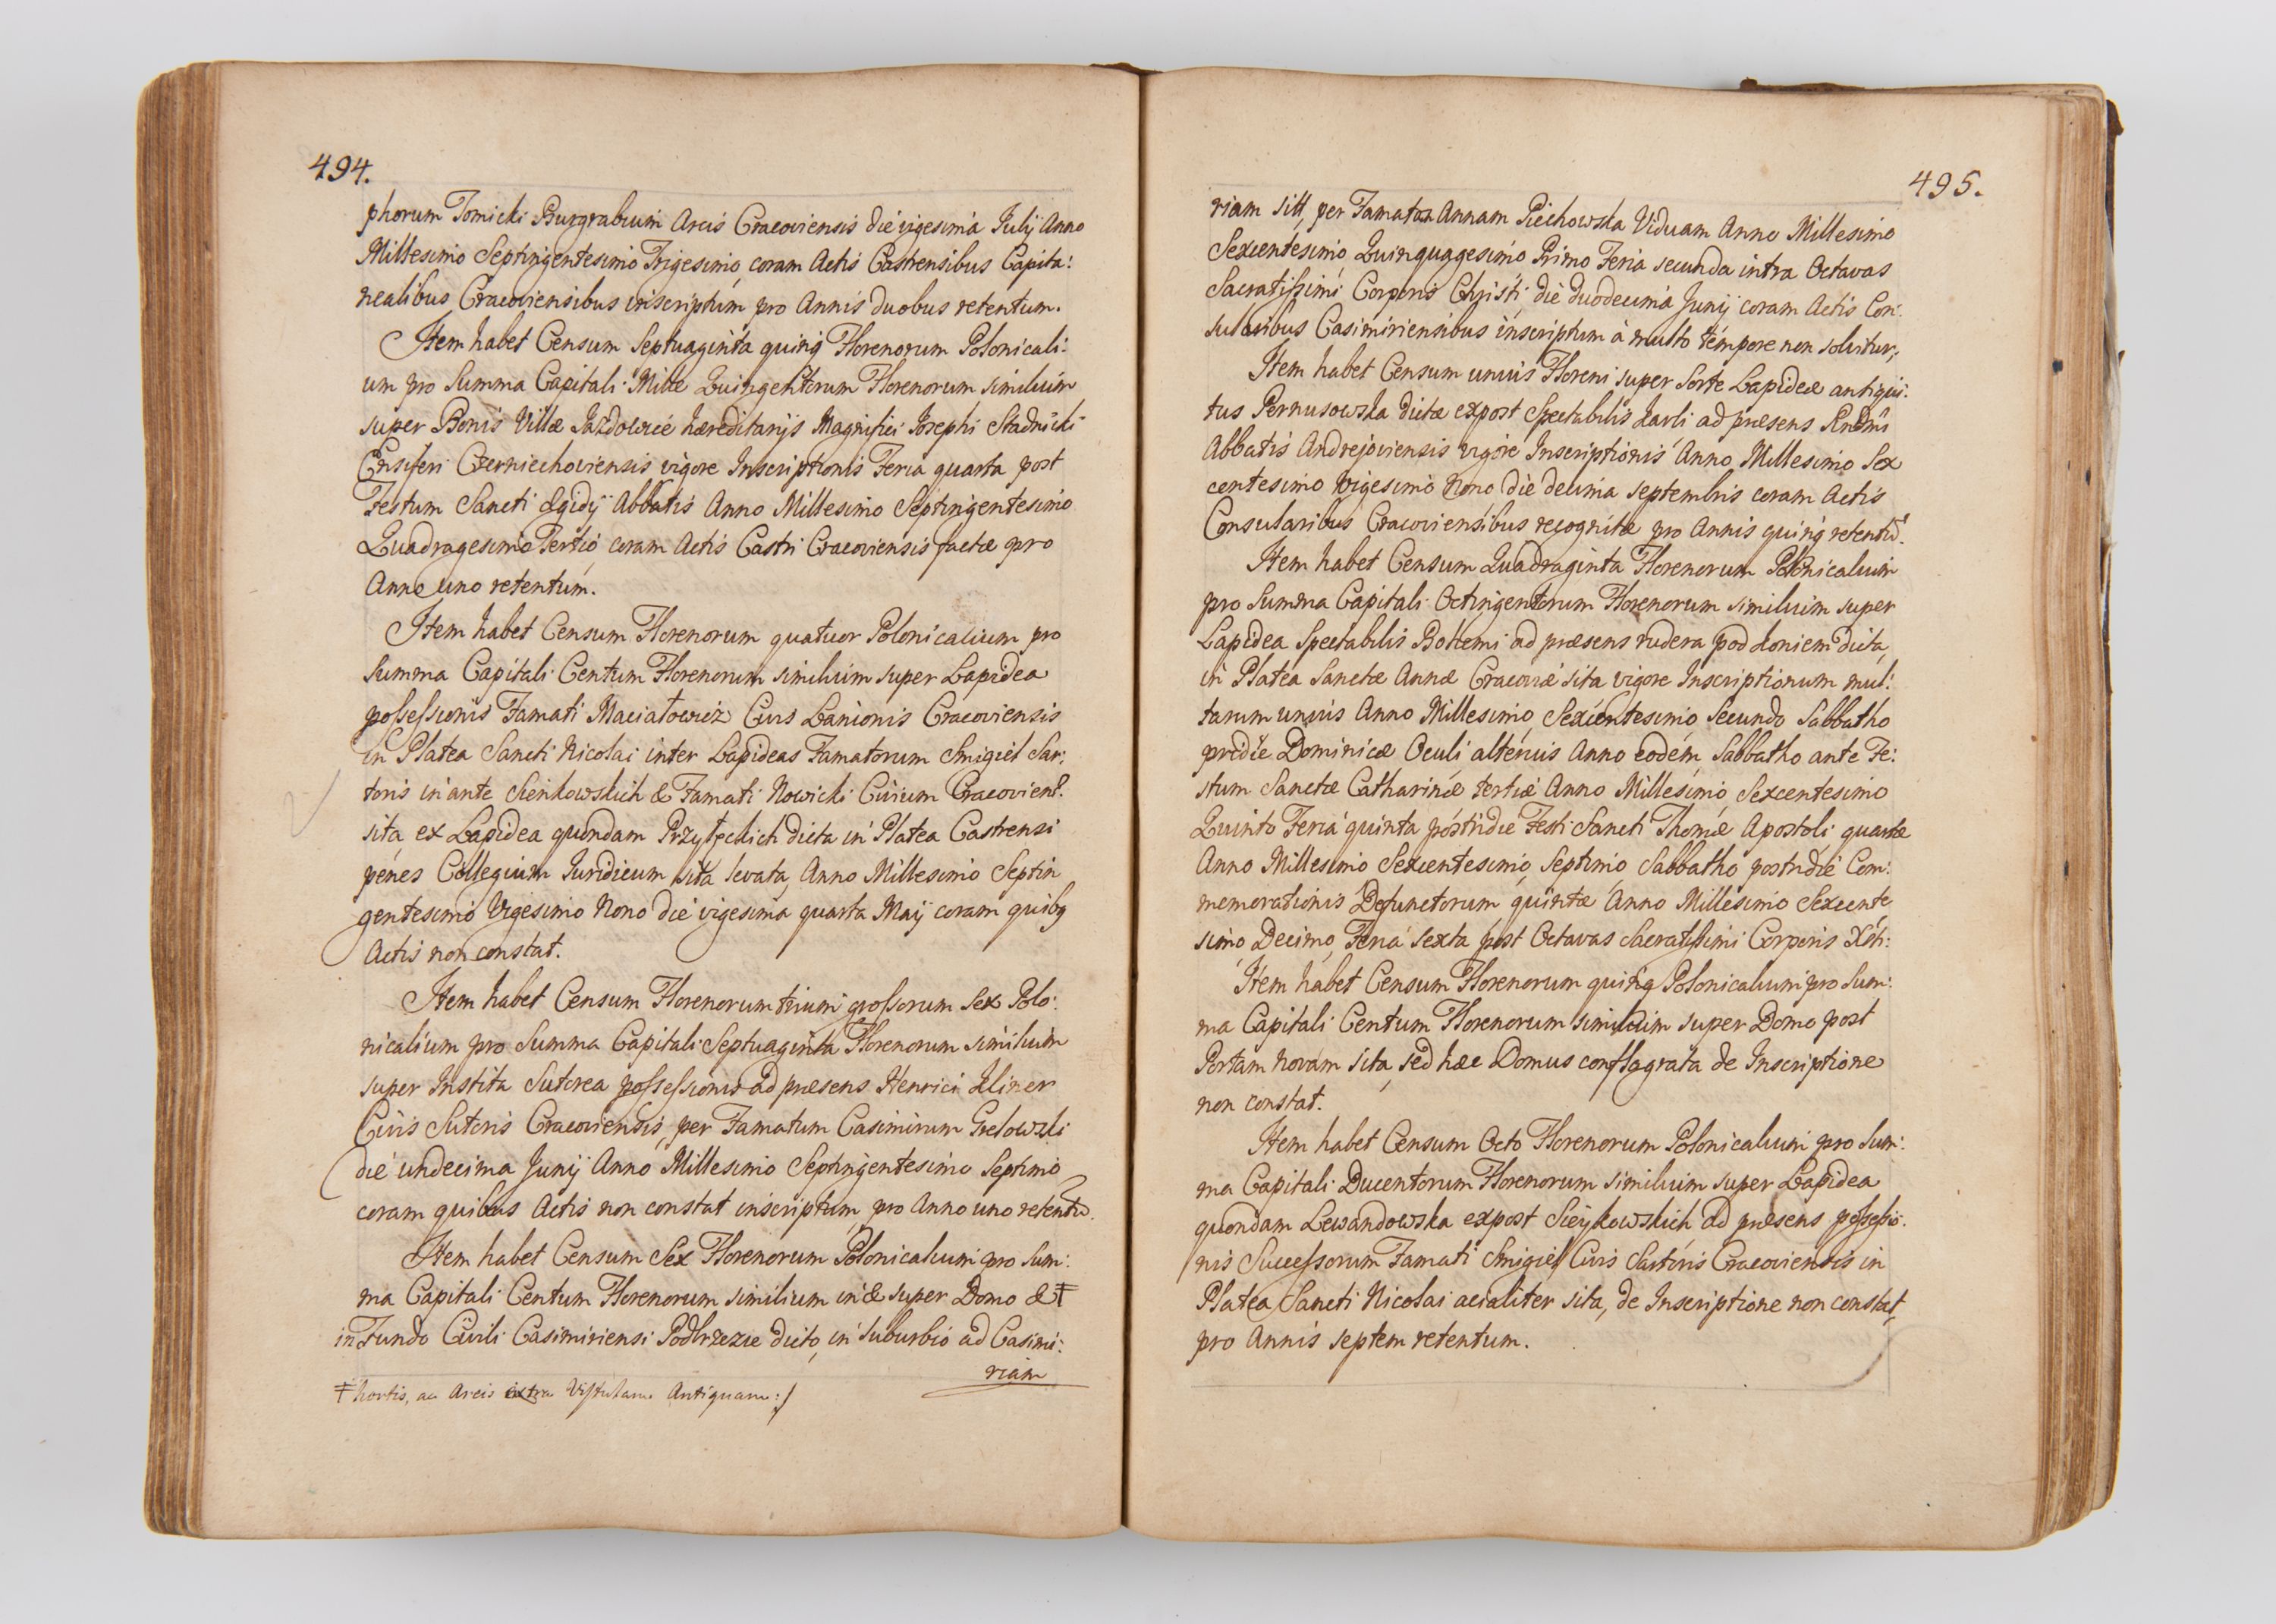 494.
phorum Tomicki Burgrabium Arcis Cracoviensis die vigesima Julij Anno
Millesimo Septingentesimo Trigesimo, coram Actis Castrensibus Capita:
nealibus Cracoviensibus inscriptum pro Annis duobus retentum.
Item habet Censum Septuaginta quinq Florenorum Polonicali:
um pro Summa Capitali Mille Quingentorum Florenorum similium
super Bonis Villæ Jazdowice hæreditarijs Magnifici Josephi Stadnicki
Ensiferi Czerniechoviensis vigore Inscriptionis Feria quarta post
Festum Sancti Ægidij Abbatis Anno Millesimo Septingentesimo
Quadragesimo Tertio, coram Actis Castri Cracoviensis factæ pro
Anno uno retentum.
Item habet Censum Florenorum quatuor Polonicalium pro
Summa Capitali Centum Florenorum similium super Lapidea
possessionis Famati Maciałowicz Civis Lanionis Cracoviensis
in Platea Sancti Nicolai inter Lapideas Famatorum Smigiel Sar:
toris in ante Sienkowskich & Famati Nowicki Civium Cracovien?
sita ex Lapidea quondam Przyłęckich dicta in Platea Castrensi
penes Collegium Juridicum sita levata, Anno Millesimo Septin
gentesimo Vigesimo Nono die vigesima quarta Maij coram quibg
Actis non constat.
Item habet Censum Florenorum trium grossorum Sex Polo:
nicalium pro Summa Capitali Septuaginta Florenorum similium
super Instita Sutorea possessionis ad præsens Henrici Kliner
Civis Sutoris Cracoviensis, per Famatum Casimirum Grelowski
die undecima Junij Anno Millesimo Septingentesimo Septimo
coram quibus Actis non constat inscriptum, pro Anno uno retentu.
Item habet Censum Sex Florenorum Polonicalium pro Sum:
ma Capitali Centum Florenorum similium in & super Domo & ‡
in Fundo Civili Casimiriensi Podbrzezie dicto, in Suburbio ad Casimi:
riam
‡ hortis, ac Areis extra Vistulam Antiquam :/
495.
riam sitt, per Famatam Annam Piechowska Viduam Anno Millesimo
Sexcentesimo Quinquagesimo Primo Feria secunda intra Octavas
Sacratissimi Corporis Christi, die duodecima Junij coram Actis Con:
sularibus Casimiriensibus inscriptum à multo tempore non solvitur;
Item habet Censum unius Floreni super Sorte Lapideæ antiqui:
tus Pernusowska dictæ expost Spectabilis Zavli ad præsens Rndmi
Abbatis Andrejoviensis vigore Inscriptionis Anno Millesimo Sex
centesimo Vigesimo Nono die decima septembris coram Actis
Consularibus Cracoviensibus recognitæ pro Annis quinq retentu.
Item habet Censum Quadraginta Florenorum Polonicalium
pro Summa Capitali Octingentorum Florenorum similium super
Lapidea Spectabilis Bohemi ad præsens rudera pod Łoniem dicta,
in Platea Sanctæ Annæ Cracoviæ sita vigore Inscriptionum mul:
tarum unius Anno Millesimo, Sexcentesimo Secundo Sabbatho
pridie Dominicæ Oculi alterius Anno eodem, Sabbatho ante Fe:
stum Sanctæ Catharinæ tertiæ Anno Millesimo, Sexcentesimo
Quinto Feria quinta postridie Festi Sancti Thomæ Apostoli quartæ
Anno Millesimo Sexcentesimo, Septimo Sabbatho postridie Com:
memorationis Defunctorum quintæ Anno Millesimo Sexcente
simo, Decimo, Feria sexta post Octavas Sacratissimi Corporis Xti:
Item habet Censum Florenorum quinq Polonicalium pro Sum:
ma Capitali Centum Florenorum similium super Domo post
Portam novam sita, sed hæc Domus conflagrata de Inscriptione
non constat.
Item habet Censum Octo Florenorum Polonicalium pro Sum:
ma Capitali Ducentorum Florenorum similium super Lapidea
quondam Lewandowska expost Sieykowskich ad præsens possessio:
nis Successorum Famati Smigiel Civis Sartoris Cracoviensis in
Platea Sancti Nicolai acialiter sita, de Inscriptione non constat,
pro Annis septem retentum.